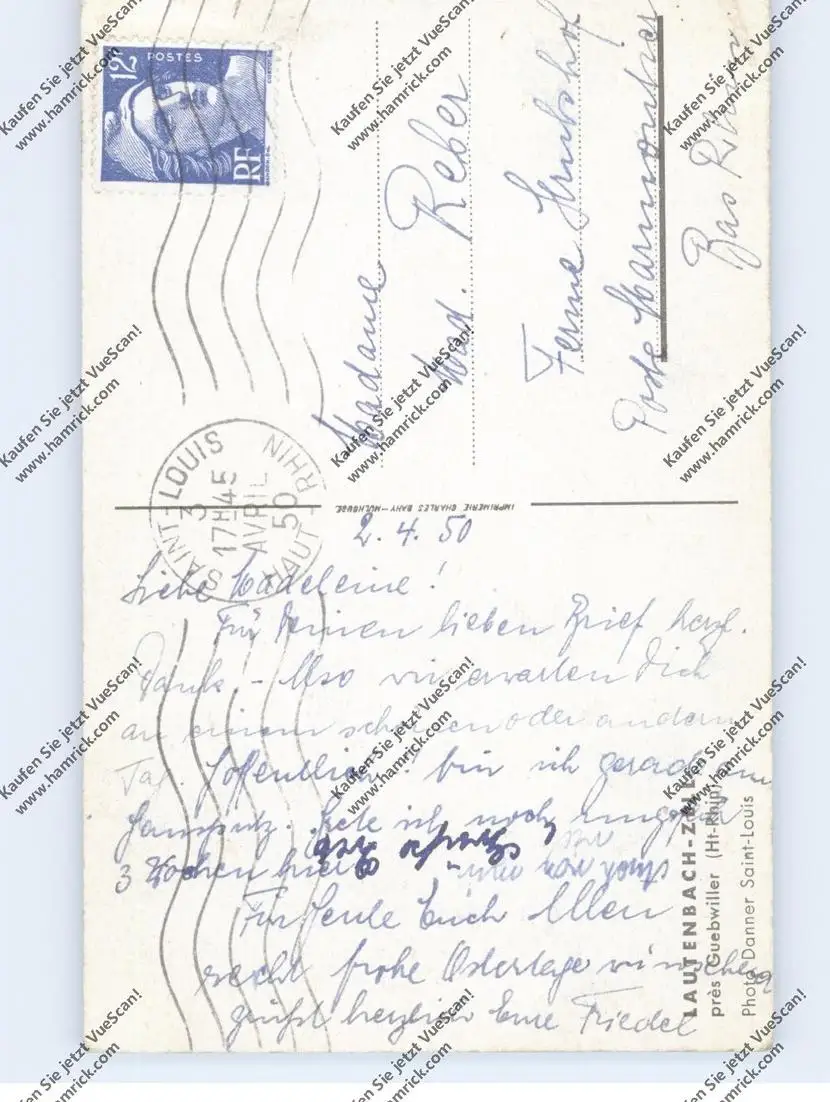 12F
POSTES
RF
SAINT-LOUIS
HAUT RHIN
3
17H45
AVRIL
50
Madame
Mad. Reber
Ferme
Poste Marmoutier
Bas Rhin
IMPRIMERIE CHARLES BAHY—MULHOUSE
2. 4. 50
Liebe Madeleine!
Für Deinen lieben Brief herzl.
Dank. – Also wir erwarten Dich
an einem schönen oder andern
Tag. Hoffentlich! bin ich gerade am
Hausputz. ich noch
3 Wochen hier
Für heute Euch Allen
recht frohe Ostertage wünschend
grüßt herzlich Eure Friedel
LAUTENBACH-ZELL
près Guebwiller (Ht-Rhin)
Photo Danner Saint-Louis
Kaufen Sie jetzt VueScan!
www.hamrick.com